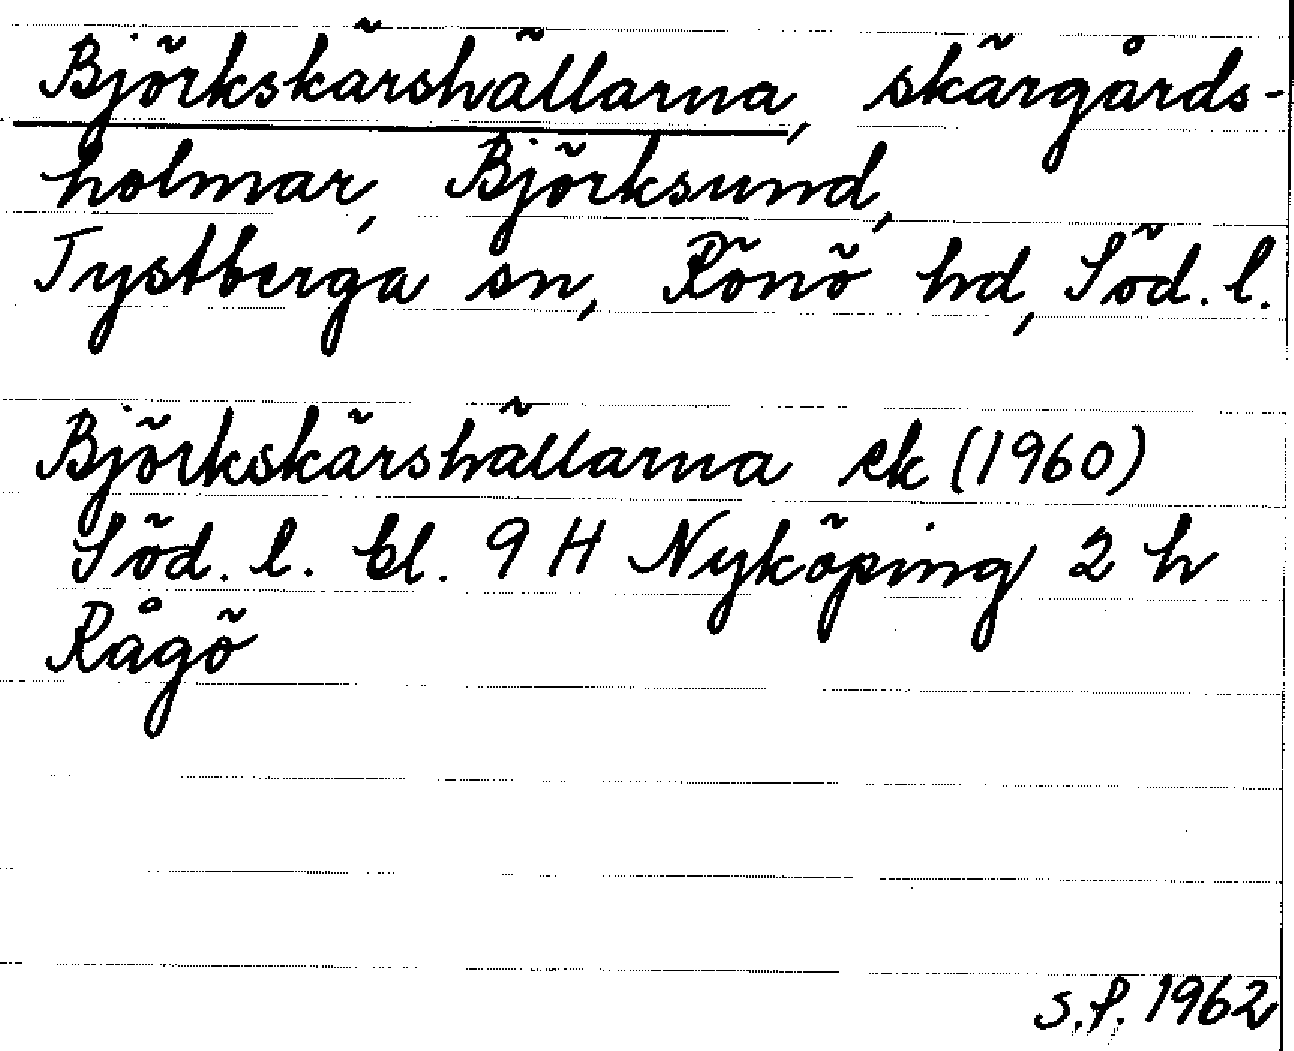 Björkskärshällarna, skärgårds-
holmar, Björksund,
Tystberga sn, Rönö hd, Söd. l.
Björkskärshällarna ek (1960)
Söd. l. bl. 9 H Nyköping 2 h
Rågö
S.P. 1962